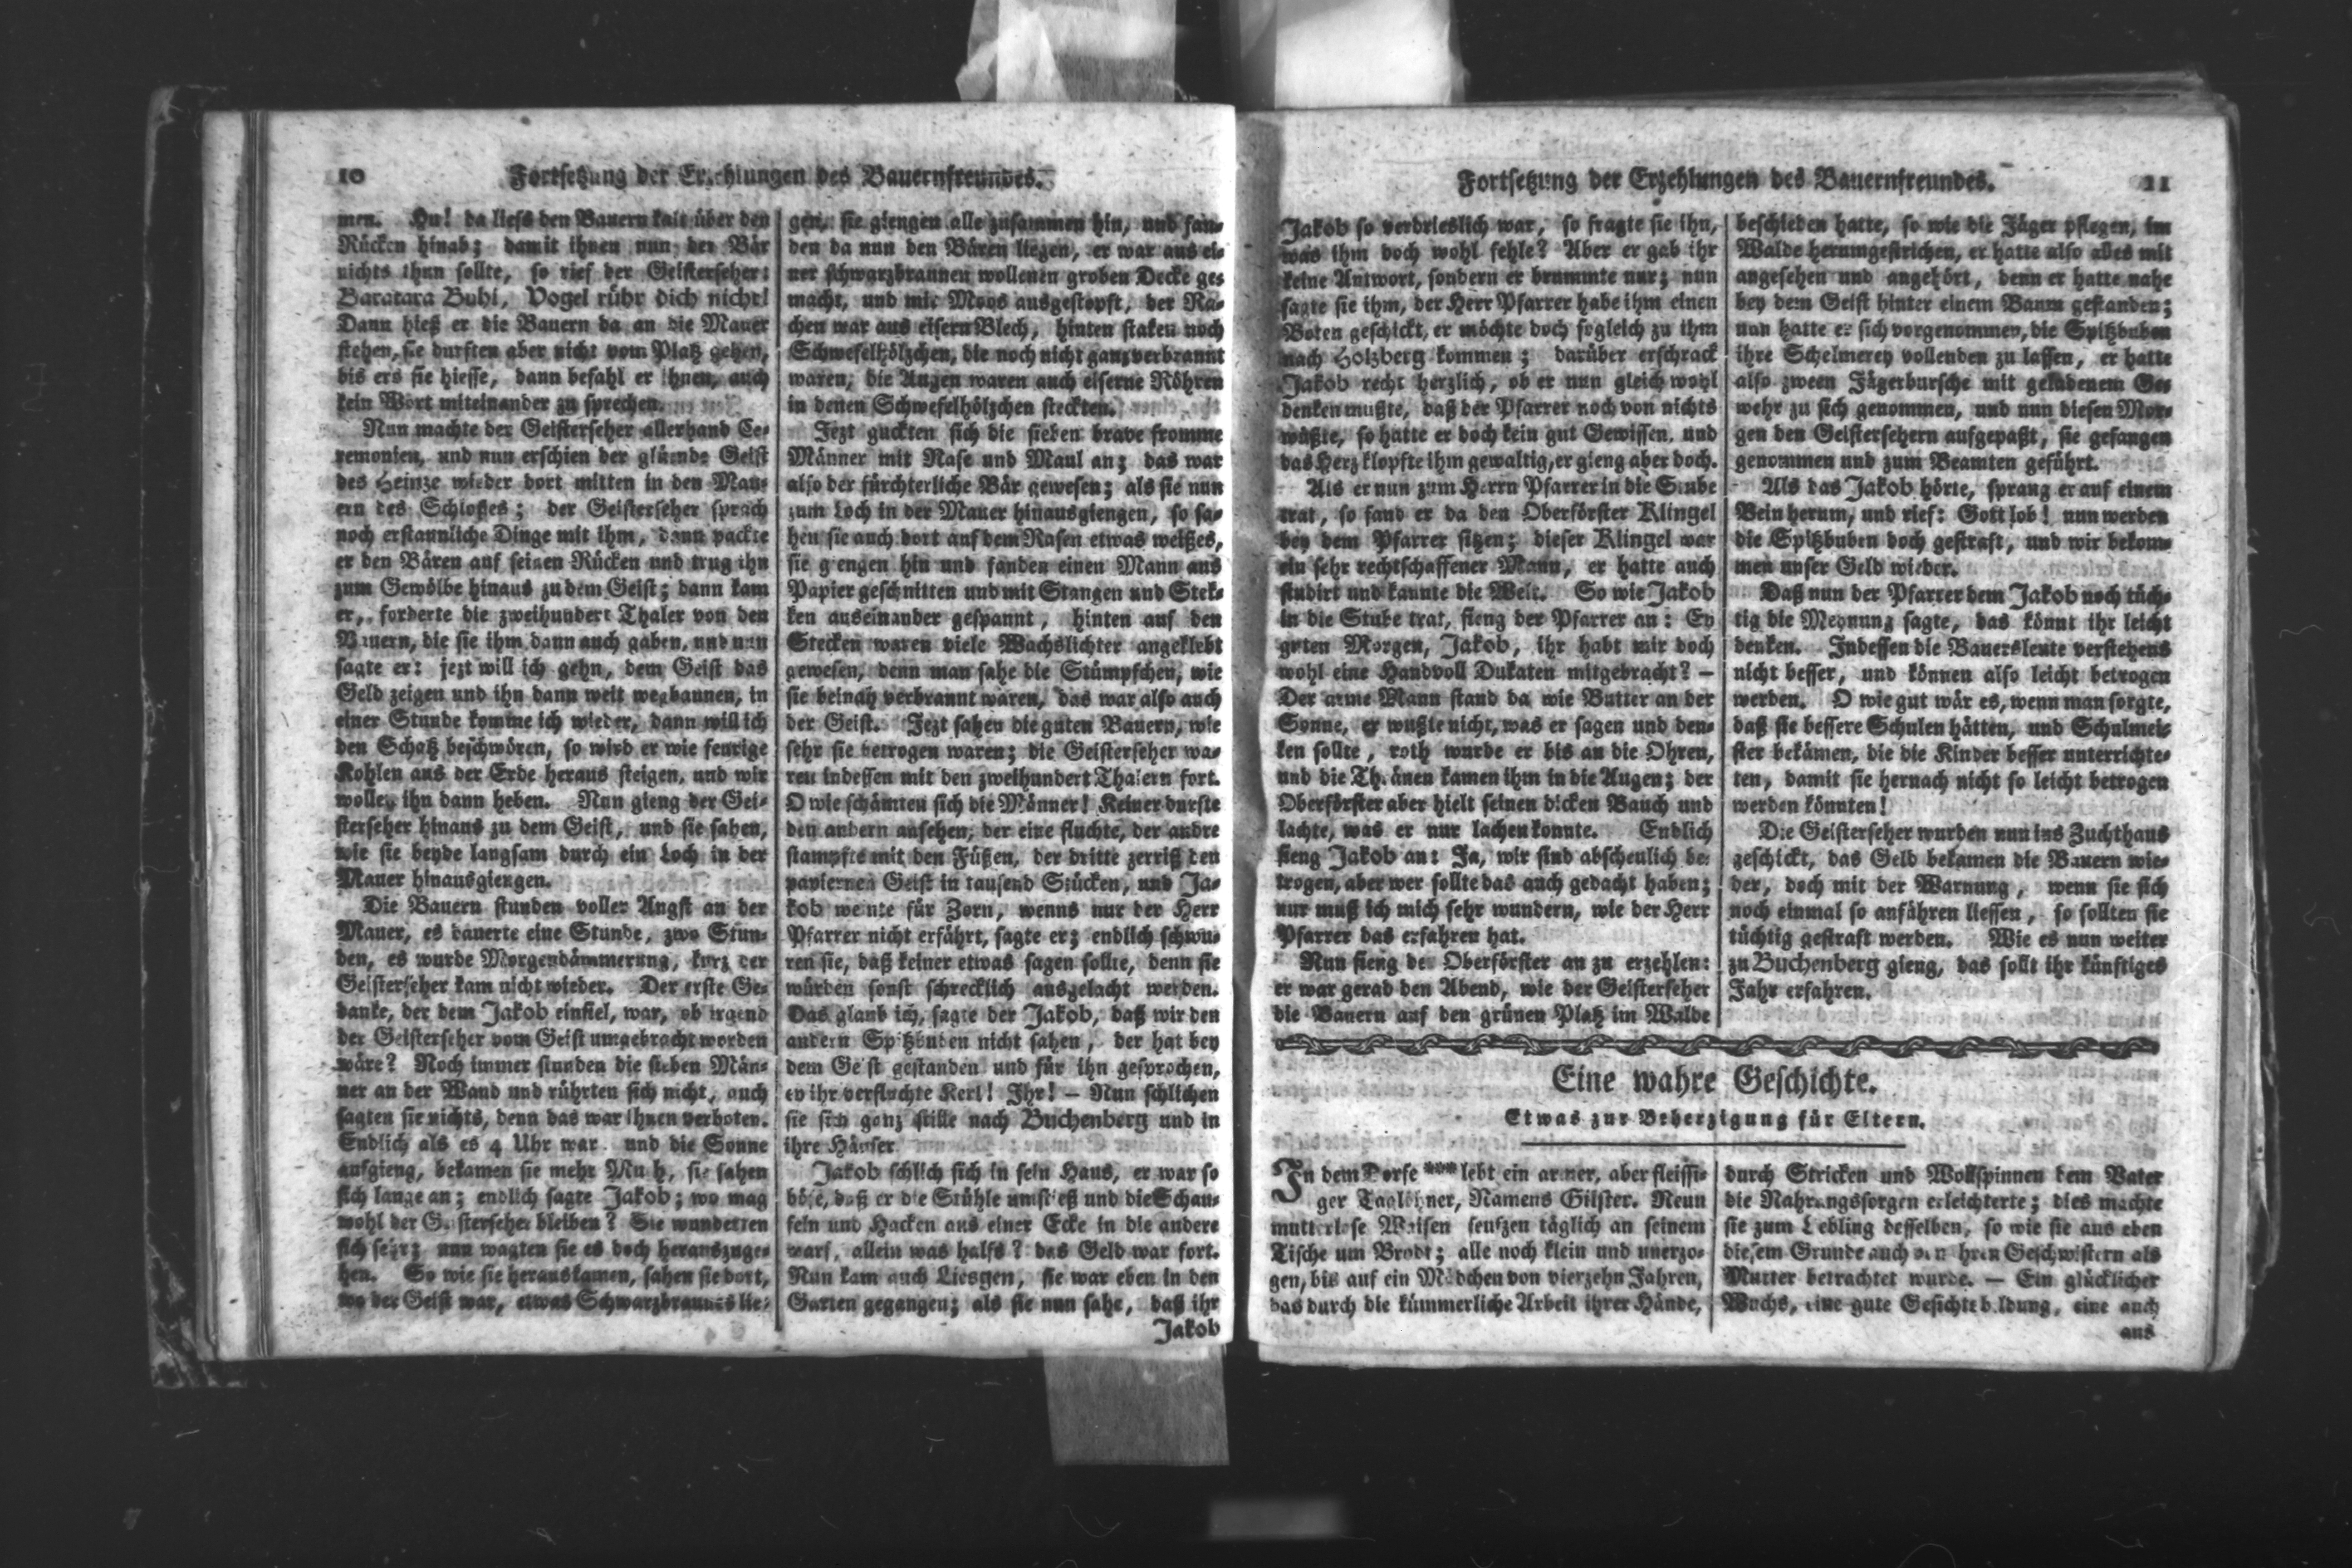 10 Fortsetzung der Erzehlungen des Bauernfreundes.
men. Hu! da liefs den Bauern kalt über den
Rücken hinab; damit ihnen nun der Bär
nichts thun sollte, so rief der Geisterseher:
Baratara Buhi, Vogel rühr dich nicht!
Dann hieß er die Bauern da an die Mauer
stehen, sie durften aber nicht vom Platz gehen,
bis ers sie hiesse, dann befahl er ihnen, auch
kein Wort miteinander zu sprechen.
Nun machte der Geisterseher allerhand Ce-
remonien, und nun erschien der glüende Geist
des Heinze wieder dort mitten in den Mau-
ern des Schloßes; der Geisterseher sprach
noch erstaunliche Dinge mit ihm, dann packte
er den Bären auf seinen Rücken und trug ihn
zum Gewölbe hinaus zu dem Geist; dann kam
er, forderte die zweihundert Thaler von den
Bauern, die sie ihm dann auch gaben, und nun
sagte er: jezt will ich gehn, dem Geist das
Geld zeigen und ihn dann weit wegbannen, in
einer Stunde komme ich wieder, dann will ich
den Schatz beschwören, so wird er wie feurige
Kohlen aus der Erde heraus steigen, und wir
wollen ihn dann heben. Nun gieng der Gei-
sterseher hinaus zu dem Geist, und sie sahen,
wie sie beyde langsam durch ein Loch in der
Mauer hinausgiengen.
Die Bauern stunden voller Angst an der
Mauer, es dauerte eine Stunde, zwo Stun-
den, es wurde Morgendämmerung, kurz der
Geisterseher kam nicht wieder. Der erste Ge-
danke, der dem Jakob einfiel, war, ob irgend
der Geisterseher vom Geist umgebracht worden
wäre? Noch immer stunden die sieben Män-
ner an der Wand und rührten sich nicht, auch
sagten sie nichts, denn das war ihnen verboten.
Endlich als es 4 Uhr war und die Sonne
aufgieng, bekamen sie mehr Muth, sie sahen
sich lange an; endlich sagte Jakob; wo mag
wohl der Geisterseher bleiben? Sie wunderten
sich sehr; nun wagten sie es doch herauszuge-
hen. So wie sie herauskamen, sahen sie dort,
wo der Geist war, etwas Schwarzbraunes lie-
gen, sie giengen alle zusammen hin, und fan-
den da nun den Bären liegen, er war aus ei-
ner schwarzbraunen wollenen groben Decke ge-
macht, und mit Moos ausgestopft, der Ra-
chen war aus eisern Blech, hinten staken noch
Schwefelhölzchen, die noch nicht ganz verbrannt
waren, die Augen waren auch eiserne Röhren
in denen Schwefelhölzchen steckten.
Jezt guckten sich die sieben brave fromme
Männer mit Nase und Maul an; das war
also der fürchterliche Bär gewesen; als sie nun
zum Loch in der Mauer hinausgiengen, so sa-
hen sie auch dort auf dem Rasen etwas weißes,
sie giengen hin und fanden einen Mann aus
Papier geschnitten und mit Stangen und Stek-
ken auseinander gespannt, hinten auf den
Stecken waren viele Wachslichter angeklebt
gewesen, denn man sahe die Stümpfchen, wie
sie beinah verbrannt waren, das war also auch
der Geist. Jezt sahen die guten Bauern, wie
sehr sie betrogen waren; die Geisterseher wa-
ren indessen mit den zweihundert Thalern fort.
O wie schämten sich die Männer! Keiner durfte
den andern ansehen, der eine fluchte, der andre
stampfte mit den Füßen, der dritte zerriß den
papiernen Geist in tausend Stücken, und Ja-
kob weinte für Zorn, wenns nur der Herr
Pfarrer nicht erfährt, sagte er; endlich schwu-
ren sie, daß keiner etwas sagen sollte, denn sie
würden sonst schrecklich ausgelacht werden.
Das glaub ich, sagte der Jakob, daß wir den
andern Spitzbuben nicht sahen, der hat bey
dem Geist gestanden und für ihn gesprochen,
ey ihr verfluchte Kerl! Ihr! — Nun schlichen
sie sich ganz stille nach Buchenberg und in
ihre Häuser
Jakob schlich sich in sein Haus, er war so
böse, daß er die Stühle umstieß und die Schau-
feln und Hacken aus einer Ecke in die andere
warf, allein was halfs? das Geld war fort.
Nun kam auch Liesgen, sie war eben in den
Garten gegangen; als sie nun sahe, daß ihr
Jakob
Fortsetzung der Erzehlungen des Bauernfreundes. 11
Jakob so verdrieslich war, so fragte sie ihn,
was ihm doch wohl fehle? Aber er gab ihr
keine Antwort, sondern er brummte nur; nun
sagte sie ihm, der Herr Pfarrer habe ihm einen
Boten geschickt, er möchte doch sogleich zu ihm
nach Holzberg kommen; darüber erschrack
Jakob recht herzlich, ob er nun gleich wohl
denken mußte, daß der Pfarrer noch von nichts
wüßte, so hatte er doch kein gut Gewissen, und
das Herz klopfte ihm gewaltig, er gieng aber doch.
Als er nun zum Herrn Pfarrer in die Stube
trat, so fand er da den Oberförster Klingel
bey dem Pfarrer sitzen; dieser Klingel war
ein sehr rechtschaffener Mann, er hatte auch
studirt und kannte die Welt. So wie Jakob
in die Stube trat, fieng der Pfarrer an: Ey
guten Morgen, Jakob, ihr habt mir doch
wohl eine Handvoll Dukaten mitgebracht? —
Der arme Mann stand da wie Butter an der
Sonne, er wußte nicht, was er sagen und den-
ken sollte, roth wurde er bis an die Ohren,
und die Thränen kamen ihm in die Augen; der
Oberförster aber hielt seinen dicken Bauch und
lachte, was er nur lachen konnte. Endlich
fieng Jakob an: Ja, wir sind abscheulich be-
trogen, aber wer sollte das auch gedacht haben;
nur muß ich mich sehr wundern, wie der Herr
Pfarrer das erfahren hat.
Nun fieng der Oberförster an zu erzehlen:
er war gerad den Abend, wie der Geisterseher
die Bauern auf den grünen Platz im Walde
beschieden hatte, so wie die Jäger pflegen, im
Walde herumgestrichen, er hatte also alles mit
angesehen und angehört, denn er hatte nahe
bey dem Geist hinter einem Baum gestanden;
nun hatte er sich vorgenommen, die Spitzbuben
ihre Schelmerey vollenden zu lassen, er hatte
also zween Jägerbursche mit geladenem Ge-
wehr zu sich genommen, und nun diesen Mor-
gen den Geistersehern aufgepaßt, sie gefangen
genommen und zum Beamten geführt.
Als das Jakob hörte, sprang er auf einem
Bein herum, und rief: Gott lob! nun werden
die Spitzbuben doch gestraft, und wir bekom-
men unser Geld wieder.
Daß nun der Pfarrer dem Jakob noch tüch-
tig die Meynung sagte, das könnt ihr leicht
denken. Indessen die Bauersleute verstehens
nicht besser, und können also leicht betrogen
werden. O wie gut wär es, wenn man sorgte,
daß sie bessere Schulen hätten, und Schulmei-
ster bekämen, die die Kinder besser unterrichte-
ten, damit sie hernach nicht so leicht betrogen
werden könnten!
Die Geisterseher wurden nun ins Zuchthaus
geschickt, das Geld bekamen die Bauern wie-
der, doch mit der Warnung, wenn sie sich
noch einmal so anführen liessen, so sollten sie
tüchtig gestraft werden. Wie es nun weiter
zu Buchenberg gieng, das sollt ihr künftiges
Jahr erfahren.
Eine wahre Geschichte.
Etwas zur Beherzigung für Eltern.
In dem Dorfe *** lebt ein armer, aber fleissi-
ger Taglöhner, Namens Gilster. Neun
mutterlose Waisen seufzen täglich an seinem
Tische um Brodt; alle noch klein und unerzo-
gen, bis auf ein Mädchen von vierzehn Jahren,
das durch die kümmerliche Arbeit ihrer Hände,
durch Stricken und Wollspinnen dem Vater
die Nahrungssorgen erleichterte; dies machte
sie zum Liebling desselben, so wie sie aus eben
diesem Grunde auch von ihren Geschwistern als
Mutter betrachtet wurde. — Ein glücklicher
Wuchs, eine gute Gesichtsbildung, eine auch
aus